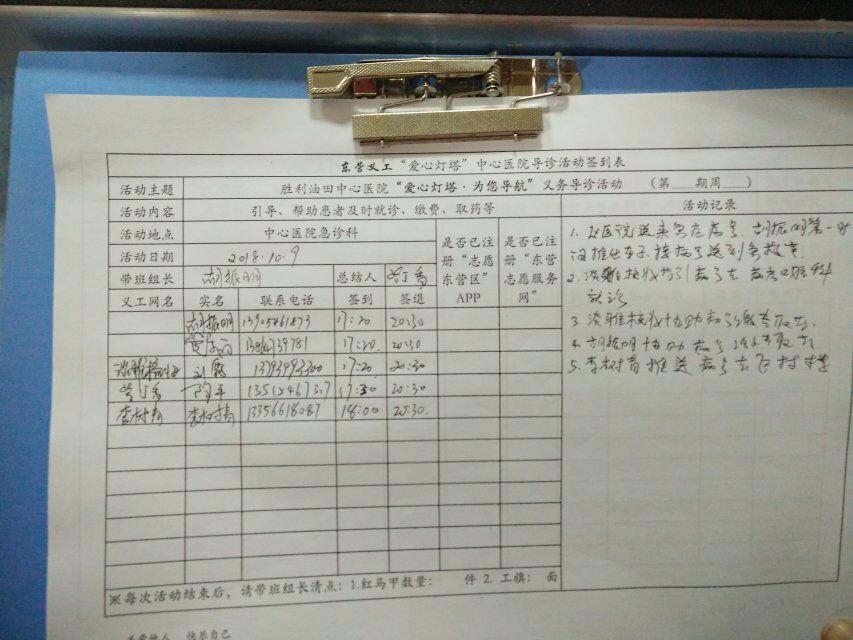 东营义工“爱心灯塔”中心医院导诊活动签到表
活动主题 胜利油田中心医院“爱心灯塔·为您导航”义务导诊活动 （第 期周 ）
活动内容 引导、帮助患者及时就诊、缴费、取药等 活动记录
活动地点 中心医院急诊科 是否已注册“志愿东营区”APP 是否已注册“东营志愿服务网”
活动日期 2018.10.9
带班组长 胡振明 总结人
义工网名 实名 联系电话 签到 签退
胡振明 13905461873 17:20 20:30
17:20 20:30
刘 13793993300 17:20 20:30
17:30 20:30
李树青 李树青 13356618087 18:00 20:30
1. 医院送来急症病号，胡振明第一时
间推出车子，接病号送到急救室
2. 淡雅 指引病号去 口腔科
就诊
3. 淡雅 协助病号缴费取药.
4. 胡振明协助病号 取药
5. 李树青推送病号去
※每次活动结束后，请带班组长清点：1.红马甲数量： 件 2. 工旗： 面
快乐自己